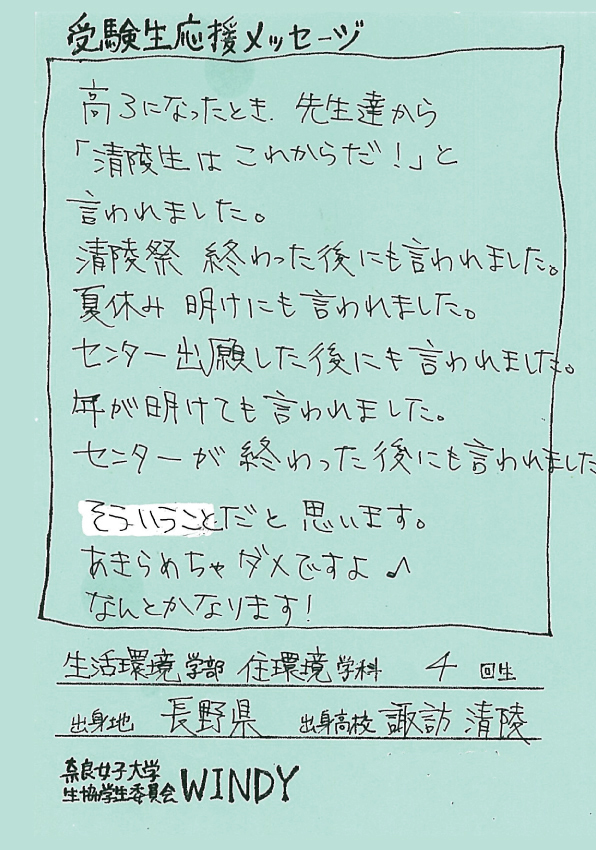 受験生応援メッセージ
高3になったとき、先生達から
「清陵生は これからだ!」と
言われました。
清陵祭 終わった後にも言われました。
夏休み 明けにも言われました。
センター出願した後にも言われました。
年が明けても言われました。
センターが終わった後にも言われました
そういうことだと思います。
あきらめちゃダメですよ♪
なんとかなります!
生活環境学部 住環境学科 4 回生
出身地 長野県 出身高校 諏訪清陵
奈良女子大学
生協学生委員会 WINDY